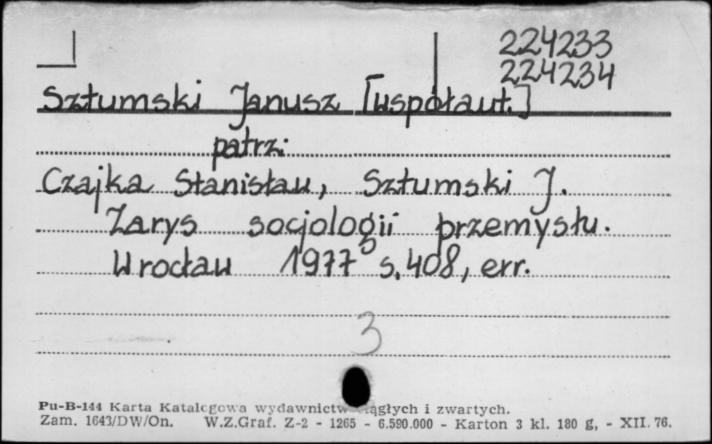 224233
224234
Sztumski Janusz [współaut.]
patrz:
Czajka Stanisław, Sztumski J.
Zarys socjologii przemysłu.
Wrocław 1977 s. 408, err.
3
Pu-B-144 Karta Katalogowa wydawnictw ciągłych i zwartych.
Zam. 1643/DW/On. W.Z.Graf. Z-2 - 1265 - 6.590.000 - Karton 3 kl. 180 g, - XII. 76.